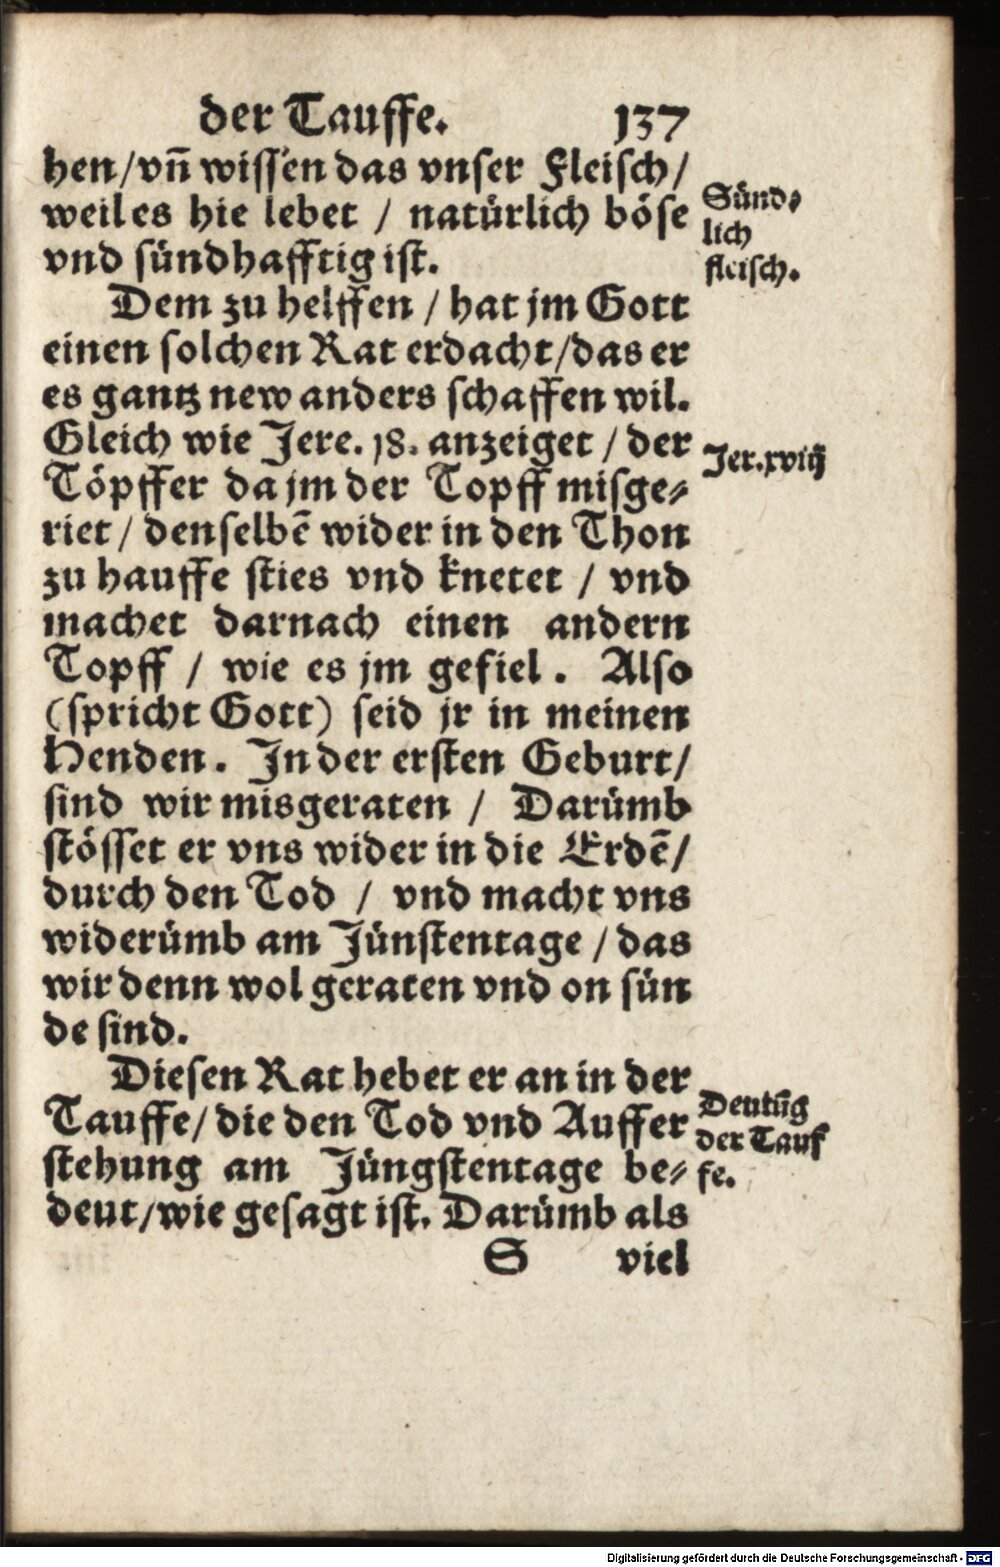 der Tauffe. 137
hen/vñ wissen das vnser Fleisch/
weil es hie lebet / natürlich böse
vnd sündhafftig ist.
Sünd⸗
lich
fleisch.
Dem zu helffen / hat jm Gott
einen solchen Rat erdacht/das er
es gantz new anders schaffen wil.
Gleich wie Jere. 18. anzeiget / der
Jer. xviij
Töpffer da jm der Topff misge⸗
riet / denselbẽ wider in den Thon
zu hauffe sties vnd knetet / vnd
machet darnach einen andern
Topff / wie es jm gefiel. Also
(spricht Gott) seid jr in meinen
Henden. In der ersten Geburt/
sind wir misgeraten / Darümb
stösset er vns wider in die Erdẽ/
durch den Tod / vnd macht vns
widerümb am Jünstentage / das
wir denn wol geraten vnd on sün
de sind.
Diesen Rat hebet er an in der
Tauffe/ die den Tod vnd Auffer
stehung am Jüngstentage be⸗
deut/wie gesagt ist. Darümb als
Deutũg
der Tauf
fe.
S viel
Digitalisierung gefördert durch die Deutsche Forschungsgemeinschaft - DFG